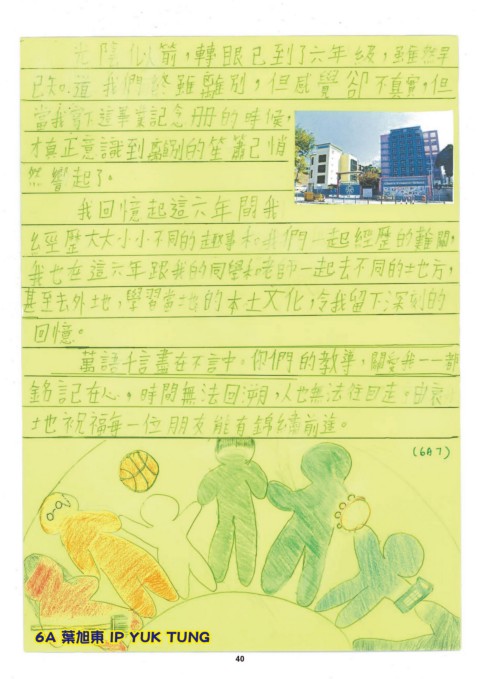 光陰似箭，轉眼已到了六年級，雖然早
已知道我們終須離別，但感覺卻不真實，但
當我寫下這畢業記念册的時候，
才真正意識到離別的笙簫已悄
然響起了。
我回憶起這六年間我
經歷大大小小不同的趣事和我們一起經歷的難關，
我也在這六年跟我的同學和老師一起去不同的地方，
甚至去外地，學習當地的本土文化，令我留下深刻的
回憶。
萬語千言盡在不言中。你們的教導，關愛我一一都
銘記在心，時間無法回溯，人也無法往回走。由衷
地祝福每一位朋友能有錦繡前途。
(6A7)
6A 葉旭東 IP YUK TUNG
40